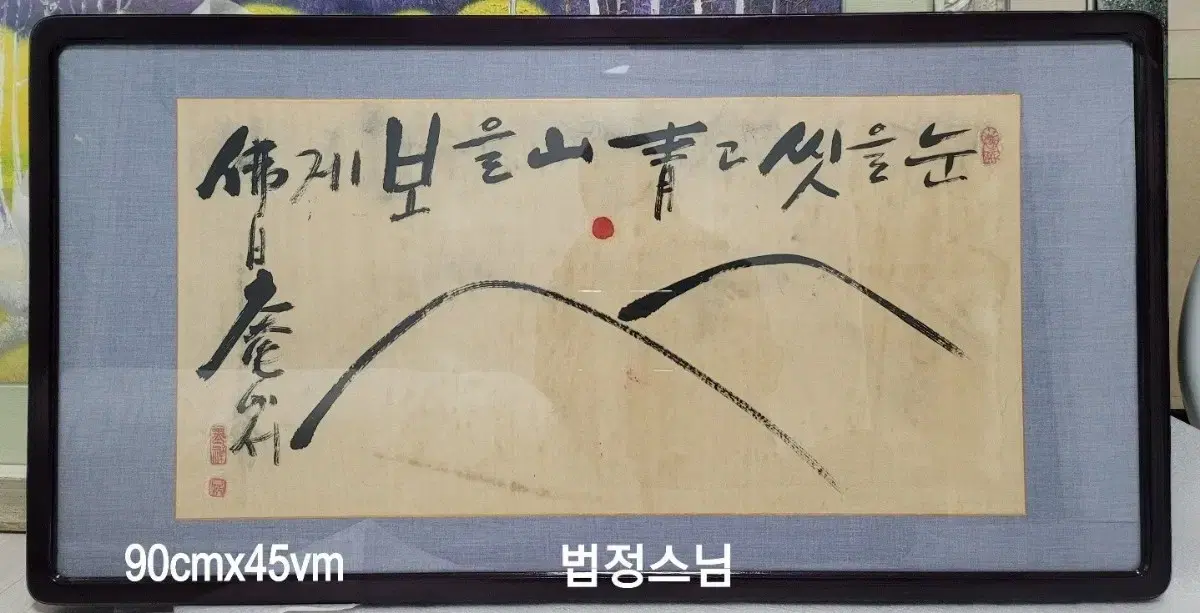 눈을 씻고 青山을 보게
佛日庵
90cmx45vm
법정스님